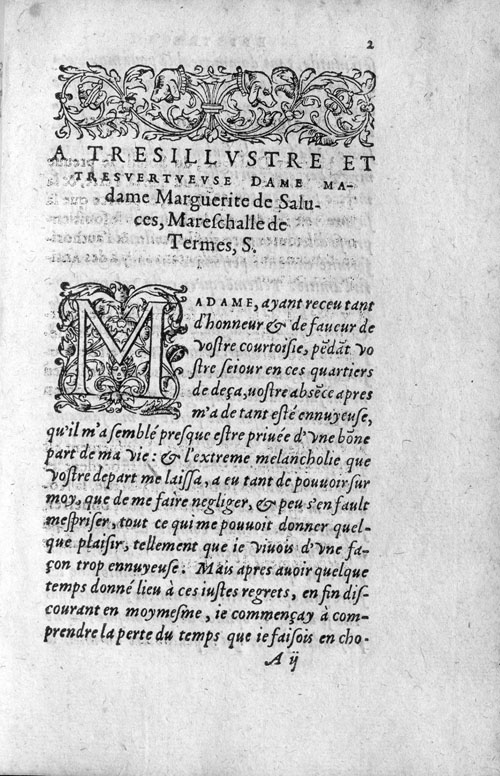 2
A TRESILLVSTRE ET
TRESVERTVEVSE DAME MA-
dame Marguerite de Salu-
ces, Mareſchalle de
Termes, S.
MADAME, ayant receu tant
d'honneur & de faueur de
voſtre courtoiſie, pẽdãt vo
ſtre ſeiour en ces quartiers
de deça, uoſtre absẽce apres
m'a de tant eſté ennuyeuſe,
qu'il m'a ſemblé presque eſtre priuée d'vne bõne
part de ma vie: & l'extreme melancholie que
voſtre depart me laiſſa, a eu tant de pouuoir ſur
moy, que de me faire negliger, & peu s'en fault
meſpriſer, tout ce qui me pouuoit donner quel-
que plaiſir, tellement que ie viuois d'vne fa-
çon trop ennuyeuſe. Mais apres auoir quelque
temps donné lieu à ces iuſtes regrets, en fin diſ-
courant en moymeſme, ie commençay à com-
prendre la perte du temps que ie faiſois en cho-
A ij